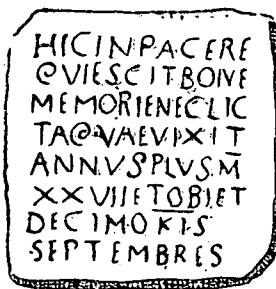 HIC IN PACE RE
QVIESCIT BONE
MEMORIE NECLIC
TA QVAE VIXIT
ANNVS PLVS M
XXVII ET OBIET
DECIMO KLS
SEPTEMBRES